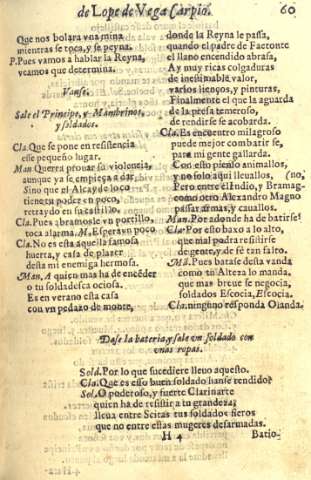 de Lope de Vega Carpio. 60
Que nos bolara vna mina
mientras se toca, y se peyna.
P. Pues vamos a hablar la Reyna,
veamos que determina.
Vanse.
Sale el Principe, y Mambrinos,
y soldados.
Cla. Que se pone en resistencia
esse pequeño lugar.
Man Querra prouar su violencia,
aunque ya se empieça a dar.
Sino que el Alcayde loco
tiene tu poder en poco,
retraydo en su castillo.
Cla. Pues abramosle vn portillo,
toca alarma. M. Espera vn poco
Cla. No es esta aquella famosa
huerta, y casa de plazer
desta mi enemiga hermosa.
Man. A quien mas ha de encẽder
o tu soldadesca ociosa.
Es en verano esta casa
con vn pedazo de monte,
donde la Reyna le passa,
quando el padre de Faetonte
el llano encendido abrasa,
Ay muy ricas colgaduras
de inestimable valor,
varios lienços, y pinturas,
Finalmente el que la aguarda
de la presa temeroso,
de rendirse se acobarda.
Cla. Es encuentro milagroso
puede mejor combatir se,
para mi gente gallarda.
Con esto pienso animallos,
y no solo aqui lleuallos, (no,
Pero entre el Indio, y Bramag-
como otro Alexandro Magno
passar armas, y cauallos.
Man. Por adonde ha de batirse?
Cla. Por esto baxo a lo alto,
que mal podra resistirse
de gente, y de sè tan falto.
Mã. Pues batase desta vanda
como tu Alteza lo manda,
que mas breue se negocia,
soldados Escocia, Escocia.
Cla. ninguno responda Olanda.
Dase la bateria, y sale vn soldado con
vnas ropas.
Sold. Por lo que sucediere lleuo aquesto.
Cla. Que es esso buen soldado hanse rendido?
Sol. O poderoso, y fuerte Clarinarte
quien ha de resistir a tu grandeza?
lleua entre Scitas tus soldados fieros
que no entre essas mugeres desarmadas.
H 4 Batio-